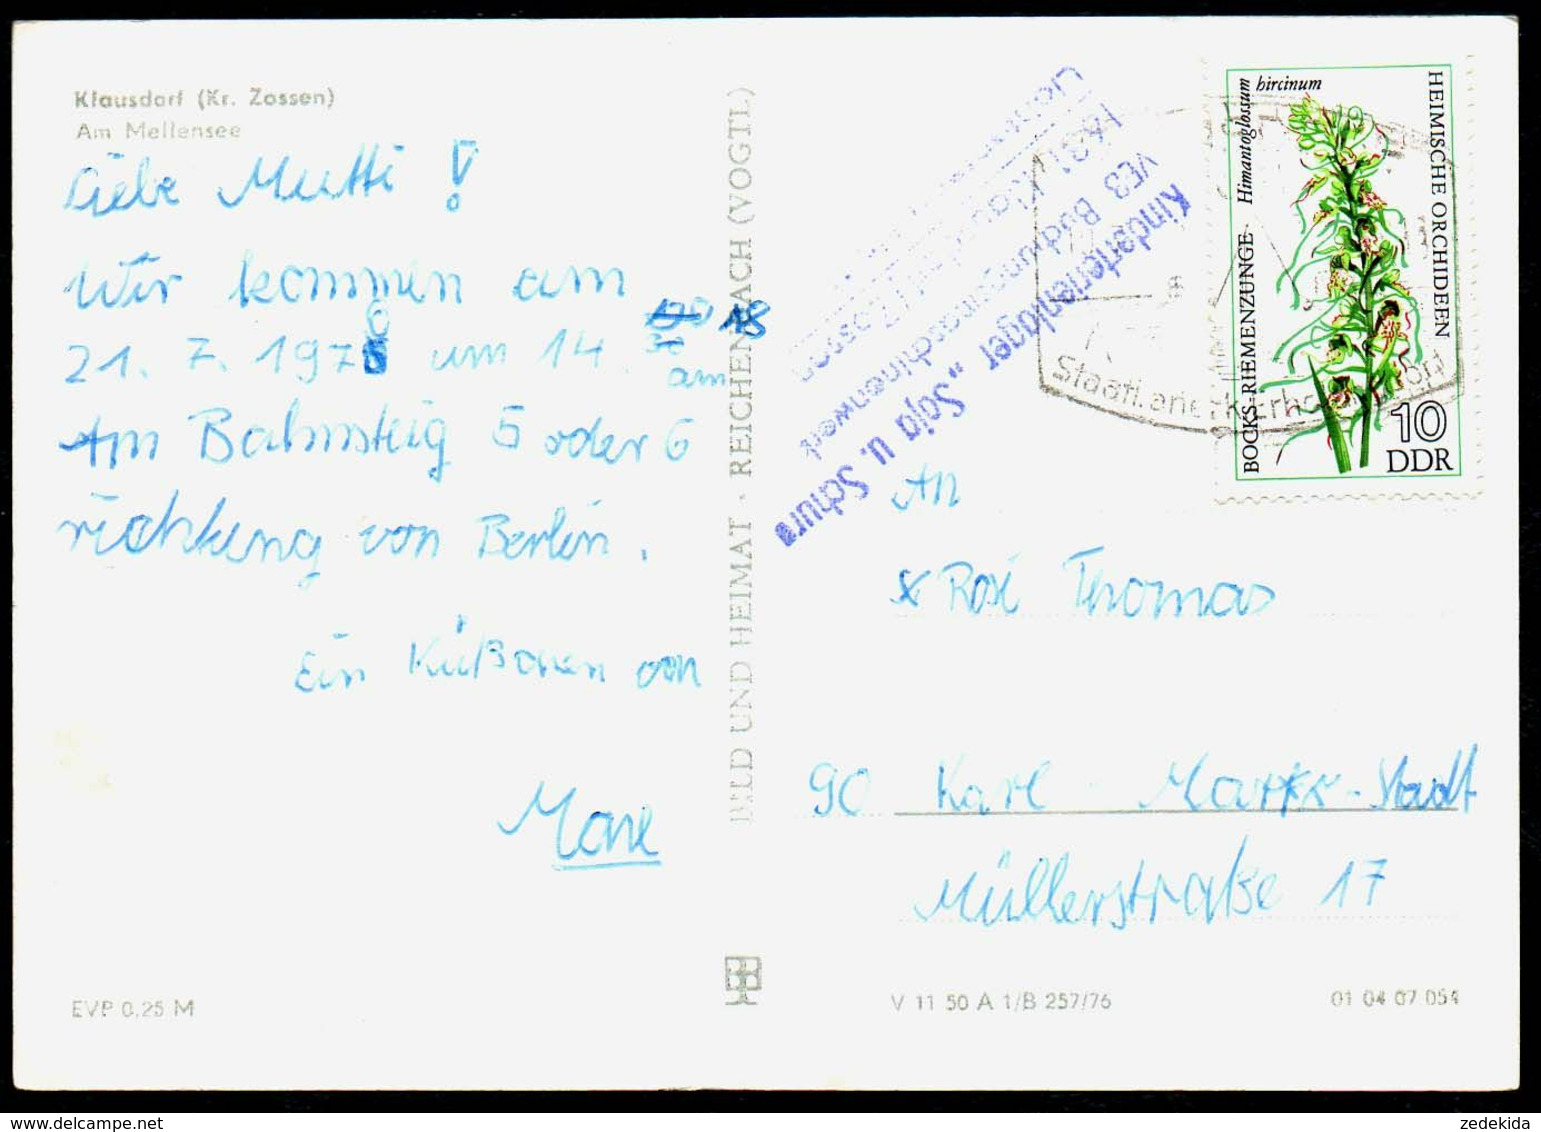 Klausdorf (Kr. Zossen)
Am Mellensee
Liebe Mutti !
Wir kommen am
21. 7. 1976 um 14. 18
am
Am Bahnsteig 5 oder 6
richtung von Berlin.
Ein Küßchen von
EVP 0,25 M
BILD UND HEIMAT · REICHENBACH (VOGTL)
Kinderferienlager „Soja u. Schura
VEB Buchungsmaschinenwerk
1631
Zossen
HEIMISCHE ORCHIDEEN
BOCKS-RIEMENZUNGE · Himantoglossum
hircinum
10
DDR
Staatl. anerk. Erholungsort
An
Rosi Thomas
90 Karl-Marx-Stadt
Müllerstraße 17
V 11 50 A 1/B 257/76
01 04 07 054
zedekida